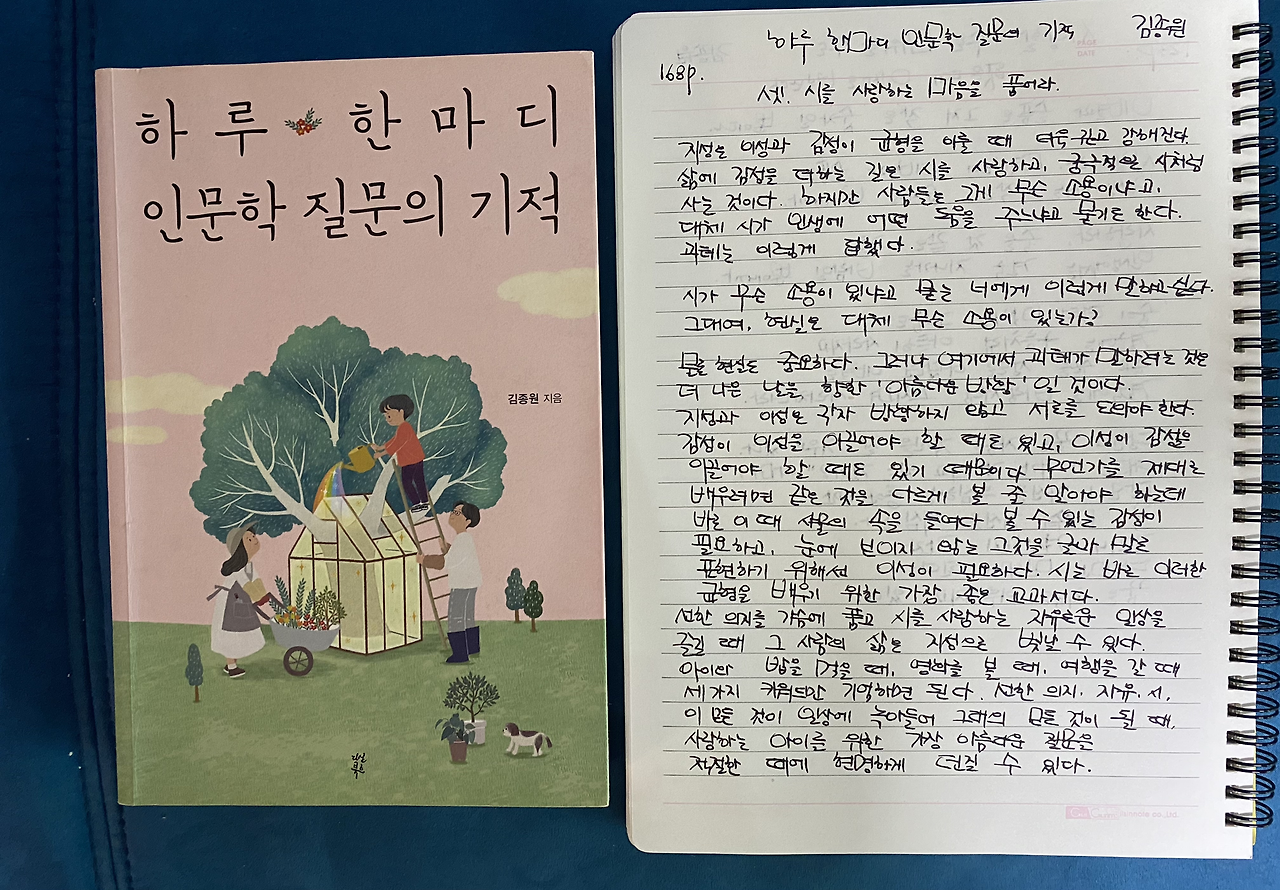 하루 한마디
인문학 질문의 기적
김종원 지음
다산북스
하루 한마디 인문학 질문의 기적 김종원
PAGE
DATE
168p.
셋. 시를 사랑하는 마음을 품어라.
지성은 이성과 감성이 균형을 이룰 때 더욱 강해진다.
삶에 감성을 더하는 길은 시를 사랑하고, 궁극적으로 시처럼
사는 것이다. 하지만 사람들은 그게 무슨 소용이냐고,
대체 시가 인생에 어떤 도움을 주느냐고 묻기도 한다.
괴테는 이렇게 답했다.
시가 무슨 소용이 있냐고 묻는 너에게 이렇게 말하고 싶다.
그대여, 현실은 대체 무슨 소용이 있는가?
물론 현실도 중요하다. 그러나 여기에서 괴테가 말하려는 것은
더 나은 날을 향한 '아름다운 방황'일 것이다.
지성과 이성은 각자 방황하지 않고 서로를 도와야 한다.
감성이 이성을 이끌어야 할 때도 있고, 이성이 감성을
이끌어야 할 때도 있기 때문이다. 무언가를 제대로
배우려면 같은 것을 다르게 볼 줄 알아야 하는데
바로 이 때 사물의 속을 들여다 볼 수 있는 감성이
필요하고, 눈에 보이지 않는 그것을 글과 말로
표현하기 위해선 이성이 필요하다. 시는 바로 이러한
균형을 배우기 위한 가장 좋은 교과서다.
선한 의지를 가슴에 품고 시를 사랑하는 자유로운 일상을
즐길 때 그 사람의 삶은 지성으로 빛날 수 있다.
아이와 밤을 걸을 때, 영화를 볼 때, 여행을 갈 때
세가지 키워드만 기억하면 된다. 선한 의지, 자유, 시,
이 모든 것이 일상에 녹아들어 그대의 모든 것이 될 때,
사랑하는 아이를 위한 가장 아름다운 질문을
적절한 때에 현명하게 던질 수 있다.